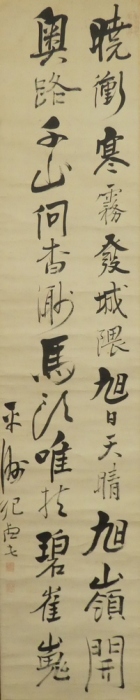 曉衝寒霧發城隈旭日天晴旭嶺開
奧路千山何杳渺馬頭唯指碧崔嵬
平洲紀德民